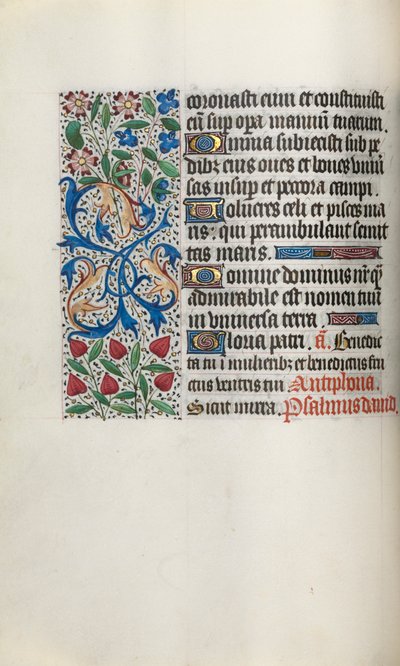 coronasti eum et constituisti
eū sup opa manuū tuarum.
Omnia subiecisti sub pe
dibꝫ eius oues et boues vniu
sas insup et pecora campi.
Volucres celi et pisces ma
ris: qui perambulant semit
tas maris.
Domine dominus nr̄ qͣ
admirabile est nomen tuū
in vniuersa terra.
Gloria patri. ā. Benedic
ta tu i mulieribꝫ et benedictus fru
ctus ventris tui Antiphona.
Sicut mirra. Psalmus dauid.